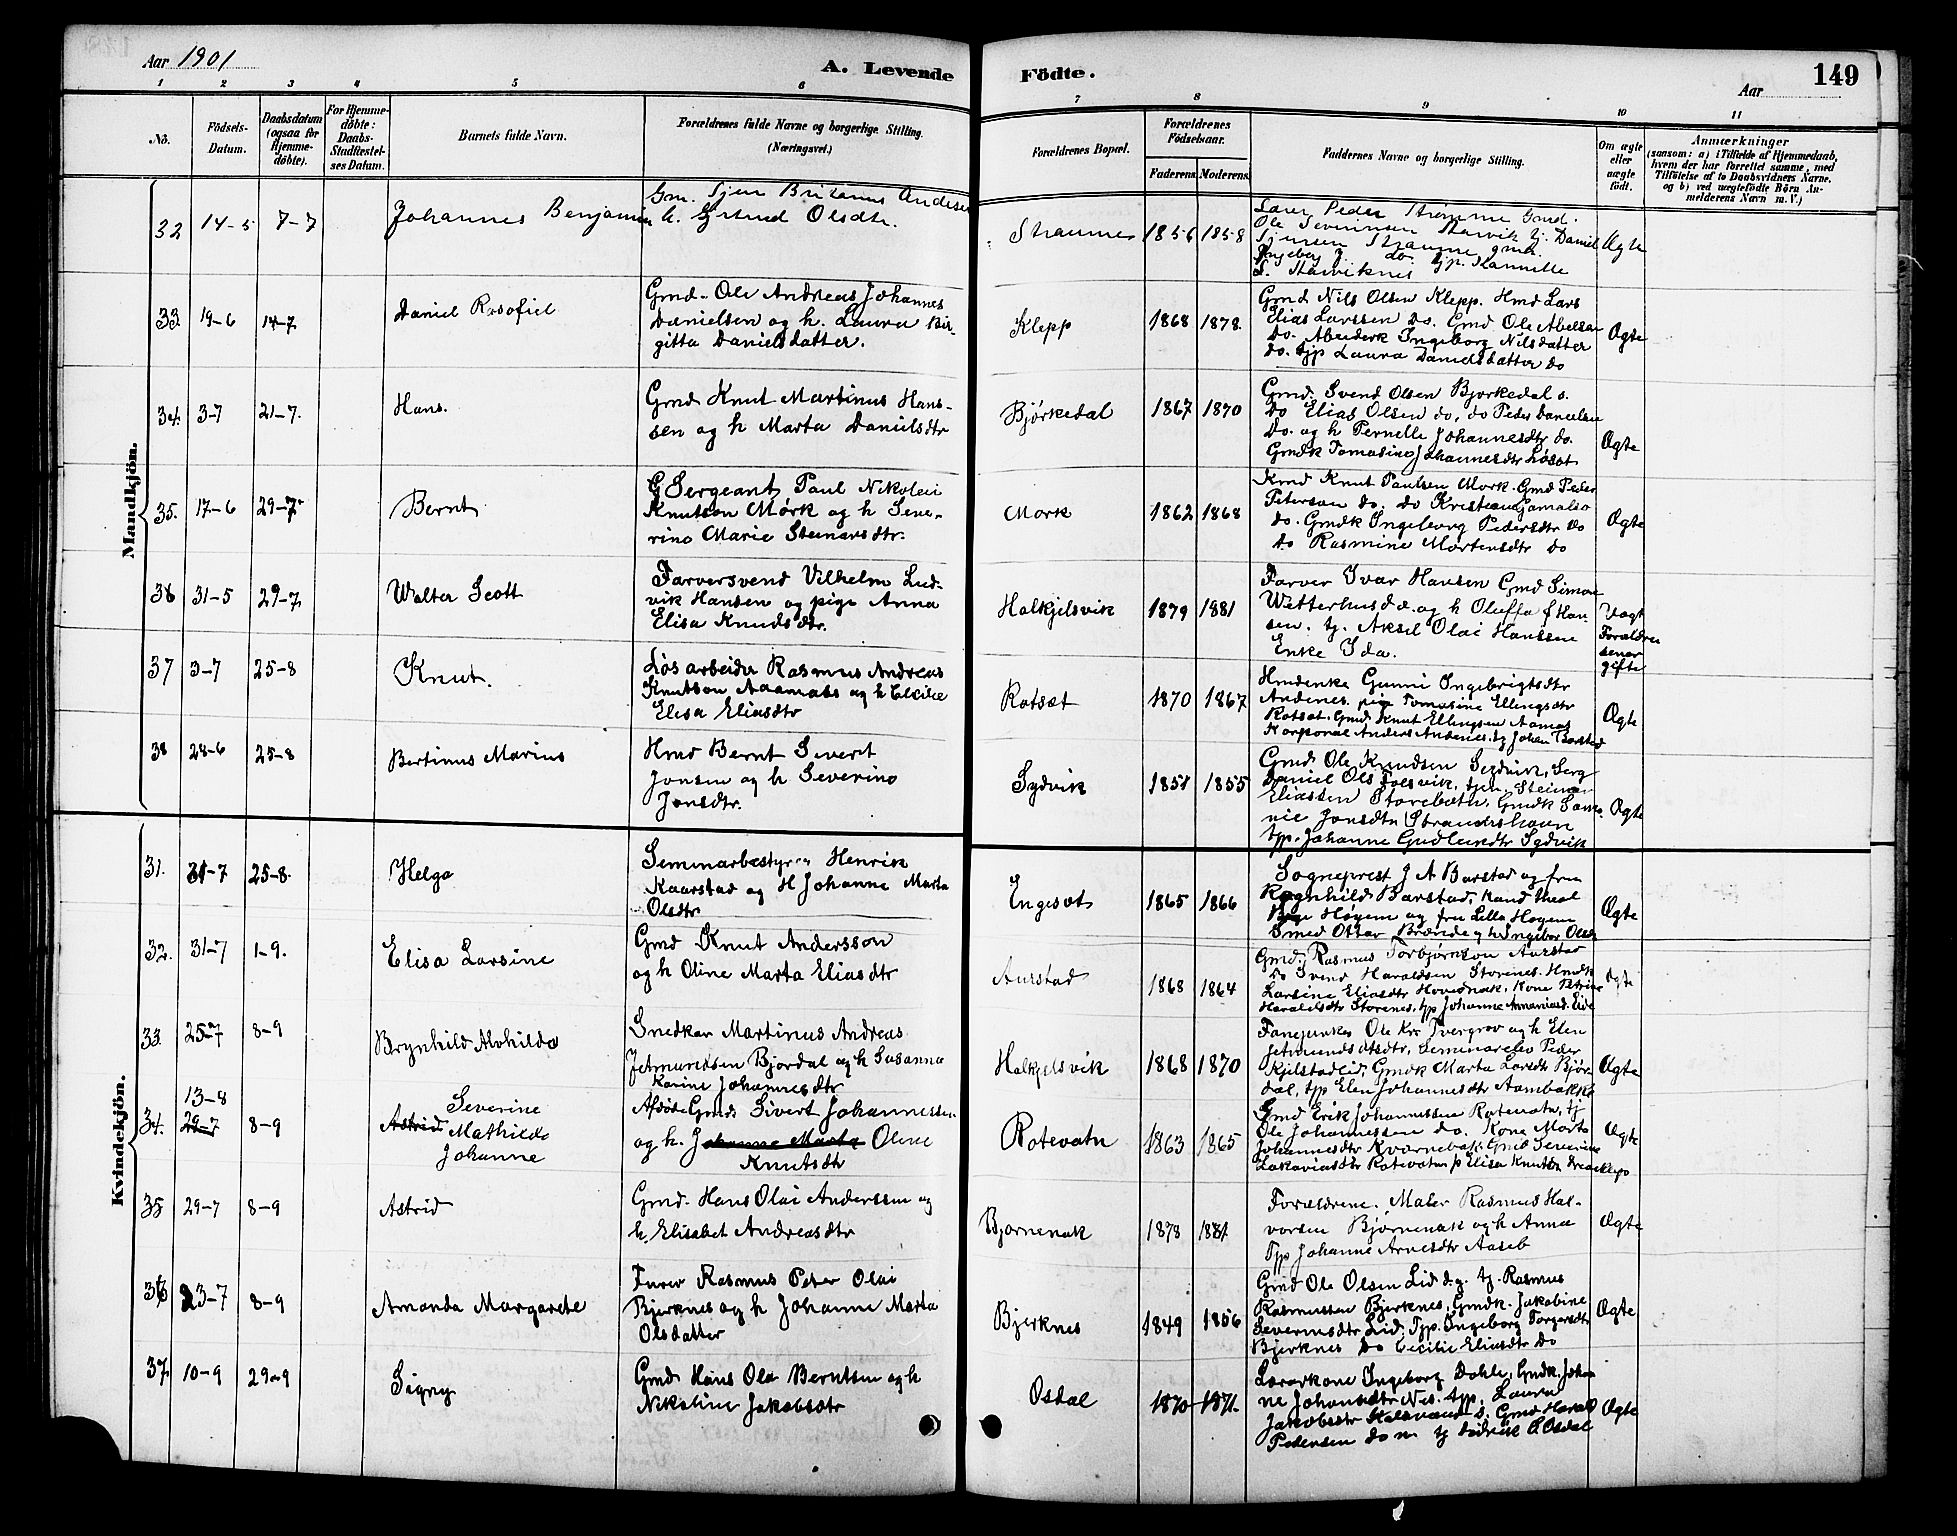 Aar 1901
A. Levende
Födte.
Aar
149
1 2 3 4 5 6 7 8 9 10 11
No.
Födsels-
Datum.
Daabsdatum
(ogsaa for
Hjemme-
döbte).
For Hjemme-
döbte:
Daabs-
Stadfæstel-
ses Datum.
Barnets fulde Navn.
Forældrenes fulde Navne og borgerlige Stilling.
(Næringsvei.)
Forældrenes Bopæl.
Forældrenes
Födselsaar.
Faderens Moderens
Faddernes Navne og borgerlige Stilling.
Om ægte
eller
uægte
födt.
Anmærkninger
(saasom: a) i Tilfælde af Hjemmedaab,
hvem der har forrettet samme, med
Tilföielse af to Daabsvidners Navne,
og b) ved uægtefödte Börn An-
melderens Navn m. V.)
Mandkjön.
32 14-5 7-7 Johannes Benjamin
h. Gurud Olsdtr.
Straume 1856 1858
Ole Severinsen Starvik tj. Daniel
Ægte
33. 19-6 14-7 Daniel Rasofiel
Gmd. Ole Andreas Johannes
Danielsen og h. Laura Bir-
gitta Danielsdatter.
Klepp 1868 1878.
Gmd Nils Olsen Klepp. Hmd Lars
Elias Larssen do. Gmd Ole Abelsen
do. Arbeiderk Ingeborg Nilsdatter
do. tjp Laura Danielsdatter do
Ægte
34. 3-7 21-7. Hans.
Gmd Knut Martinus Hans-
sen og h Marta Danielsdtr
Bjørkedal 1867 1870
Gmd. Svend Olsen Bjørkedal o.
do Elias Olsen do, do Peder Danielsen
do. og h Pernelle Johannesdtr do.
Gmdk Tomasine Johannesdtr Løset
Ægte
35. 17-6 29-7 Bernt
Sergeant Paul Nikolai
Knutson Mørk og h Seve-
rine Marie Steinarsdtr.
Mørk 1862 1868
Kmd Knut Paulsen Mørk. Gmd Peder
Peterson do. do Kristian
do. Gmdk Ingeborg Pedersdtr do
do Rasmine Mortensdtr do
Ægte
36 31-5 29-7 Walter Scott
Farversvend Vilhelm Lud-
vik Hansen og pige Anna
Elisa Knudsdtr.
Halkjelsvik 1879 1881
Farver Ivar Hansen Gmd Simon
Wetterhus do. og h Oluffa f Han-
sen. tj. Aksel Olai Hanssen
Enke Ida.
Uægt
Forældre
senor
gifte
37 3-7 25-8 Knut.
Løsarbeider Rasmus Andreas
Knutson Aaamaas og h Cecilie
Elisa Eliasdtr
Rotset 1870 1867
Hmdenke Gunni Ingebrigtsdtr
Andenes. pige Tomasine Ellingsdtr
Rotset. Gmd Knut Ellingsen Aamas
Korporal Anders Andenes. tj Johan Barstad
Ægte
38 28-6 25-8 Bertinus Marius
Hmd Bernt Sivert
Jonsen og h Severine
Jonsdtr.
Sydvik 1851 1855
Gmd. Ole Knudsen Sydvik, Serg
Daniel Ols Folsvik, tjen. Steinar
Eliassen Storebøtn, Gmdk
Jonsdtr Strandshavn
tjp. Johanne Gudleikdtr Sydvik
Ægte
Kvindekjön.
31. 31-7 25-8. Helga
Seminarbestyrer Henrik
Kaarstad og H Johanne Marta
Olsdtr
Engeset 1865 1866
Sogneprest J A Barstad og frue
Ragnhild Barstad, Kand theol
Høyem og fru Lilla Høyem
Smed Ottar Brænde og h Ingebor Olsdtr
Ægte
32. 31-7 1-9. Elisa Larsine
Gmd Knut Andersson
og h Oline Marta Eliasdtr
Aurstad 1868 1864
Gmd. Rasmus Torbjørnson Aurstad
do Svend Haraldsen Storenes. Hmdk
Larsine Eliasdtr Hovednak, Kone Petrine
Haraldsdtr Storenes, tjp Johanne Eide
Ægte
33. 25-7 8-9 Brynhild Alvhilda
Snedker Martinus Andreas
Jetmundsen Bjørdal og h Susanna
Karine Johannesdtr
Halkjelsvik 1868 1870
Fanejunker Ole Kr. Tvergrov og h Elen
Jetmundsdtr, Seminarelev Peder
Kjelstadlid, Gmdk Marta Larsdtr Bjør-
dal, tjp Elen Johannesdtr Aambakke
Ægte
34. 13-8
29-7 8-9 Astrid Severine
Mathilde
Johanne
Afdøde Gmd. Sivert Johannessen
og h. Johanne Marta Oline
Knutsdtr
Rotevatn 1863 1865
Gmd Erik Johannessen Rotevatn, tj
Ole Johannessen do. Kone Marta
Johannesdtr Kvarnebak, Gmd Severine
Sakariasdtr Rotevatn p Elisa Knutsdtr
Ægte
35 29-7 8-9 Astrid
Gmd. Hans Olai Anderssen og
h. Elisabet Andreasdtr
Bjørnenak 1878 1881
Forældrene. Maler Rasmus Hal-
vorsen Bjørnenak og h Anna
Tjp Johanne Arnesdtr Aaseb
Ægte
36 23-7 8-9 Amanda Margarete
Furer Rasmus Peter Olai
Bjerknes og h Johanne Marta
Olsdatter
Bjerknes 1849 1856
Gmd Ole Olsen Lid d.y. tj. Rasmus
Rasmussen Bjerknes, Gmdk. Jakobine
Severinsdtr Lid. Tjp. Ingeborg Torgersdtr
Bjerknes do Cecilie Eliasdtr do
Ægte
37 10-9 29-9 Signy
Gmd Hans Ola Berntsen og h
Nikoline Jakobsdtr
Osdal 1870 1871.
Lærarkone Ingeborg Dahle, Gmdk. Johan
ne Johansdtr Nes. tjp. Laura
Jakobsdtr s. Gmd Harald
Pedersen do tj Osdal
Ægte